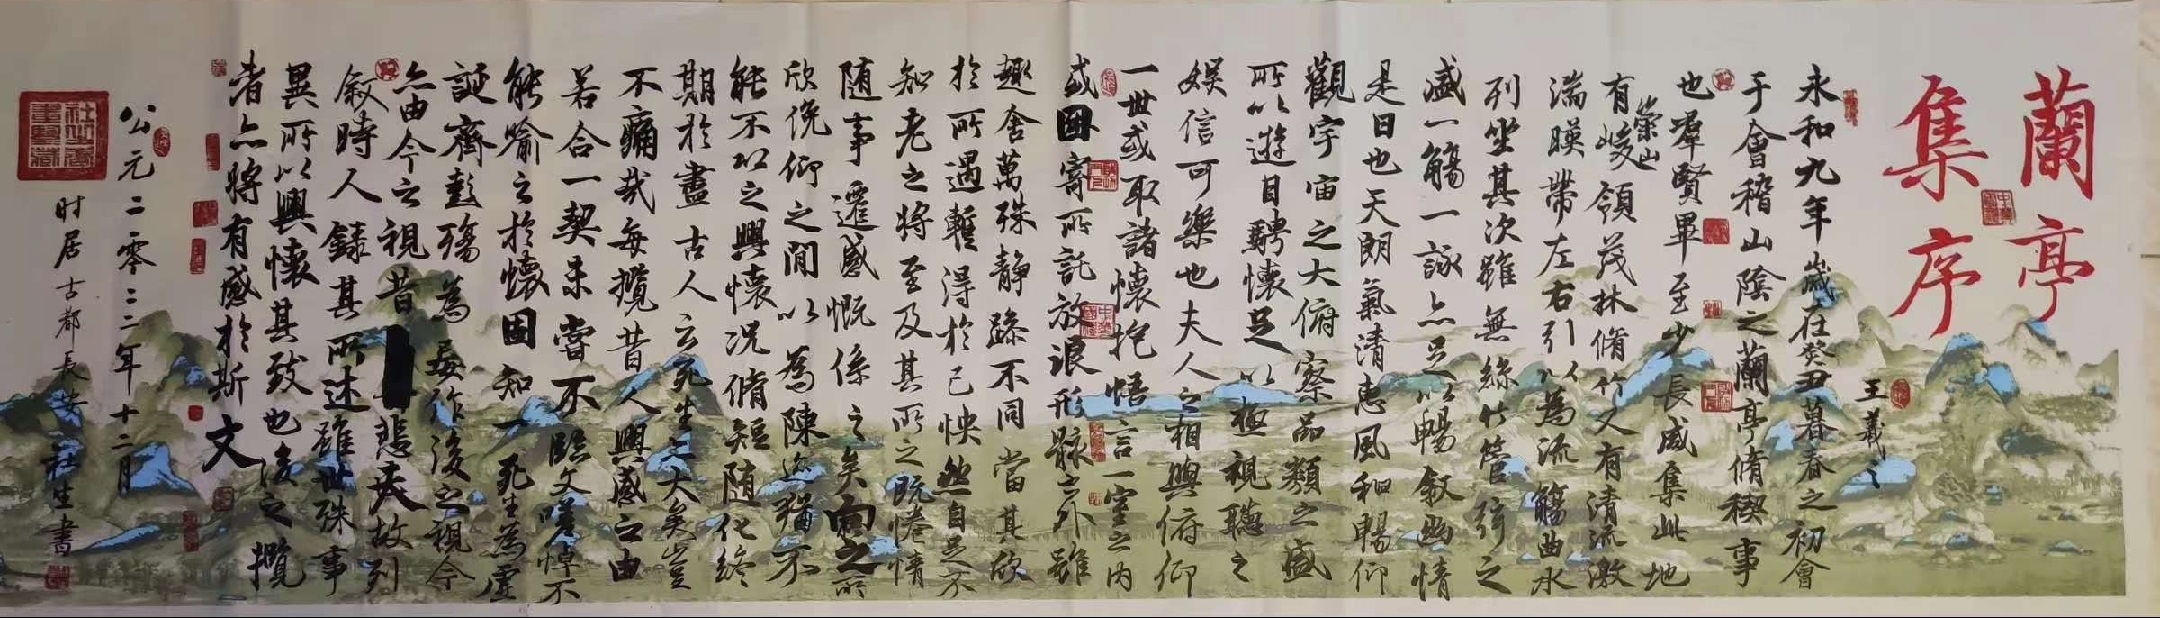 蘭亭
集序
王羲之
永和九年歲在癸丑暮春之初會
于會稽山陰之蘭亭脩稧事
也羣賢畢至少長咸集此地
有崇山峻領茂林脩竹又有清流激
湍暎帶左右引以為流觴曲水
列坐其次雖無絲竹管弦之
盛一觴一詠亦足以暢敘幽情
是日也天朗氣清惠風和暢仰
觀宇宙之大俯察品類之盛
所以遊目騁懷足以極視聽之
娛信可樂也夫人之相與俯仰
一世或取諸懷抱悟言一室之內
或因寄所託放浪形骸之外雖
趣舍萬殊靜躁不同當其欣
於所遇暫得於己怏然自足不
知老之將至及其所之既惓情
隨事遷感慨係之矣向之所
欣俛仰之間以為陳迹猶不
能不以之興懷況脩短隨化終
期於盡古人云死生亦大矣豈
不痛哉每攬昔人興感之由
若合一契未嘗不臨文嗟悼不
能喻之於懷固知一死生為虛
誕齊彭殤為妄作後之視今
亦由今之視昔悲夫故列
敘時人錄其所述雖世殊事
異所以興懷其致也後之攬
者亦將有感於斯文
公元二零二二年十二月
时居古都長安社生書